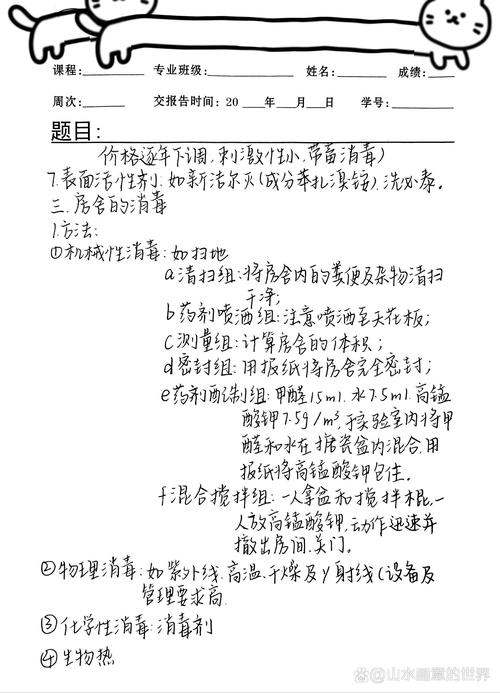 课程:________ 专业班级:____________ 姓名:_______ 成绩:____
周次:________ 交报告时间: 20 ___年___月___日 学号:_________
题目:
价格逐年下调,刺激性小,带畜消毒)
7.表面活性剂:如新洁尔灭(成分苯扎溴铵).洗必泰。
三.房舍的消毒
1.方法:
①机械性消毒:如扫地
a清扫组:将房舍内的粪便及杂物清扫
干净;
b药剂喷洒组:注意喷洒至天花板;
c测量组:计算房舍的体积;
d密封组:用报纸将房舍完全密封;
e药剂配制组:甲醛15ml.水7.5ml.高锰
酸钾7.5g/m³,于实验室内将甲
醛和水在搪瓷盆内混合,用
报纸将高锰酸钾包住。
f混合搅拌组:一人拿盆和搅拌棍,一
人放高锰酸钾,动作迅速并
撤出房间.关门。
②物理消毒:如紫外线.高温、干燥及γ射线(设备及
管理要求高.
③化学性消毒:消毒剂
④生物热
@山水画意的世界